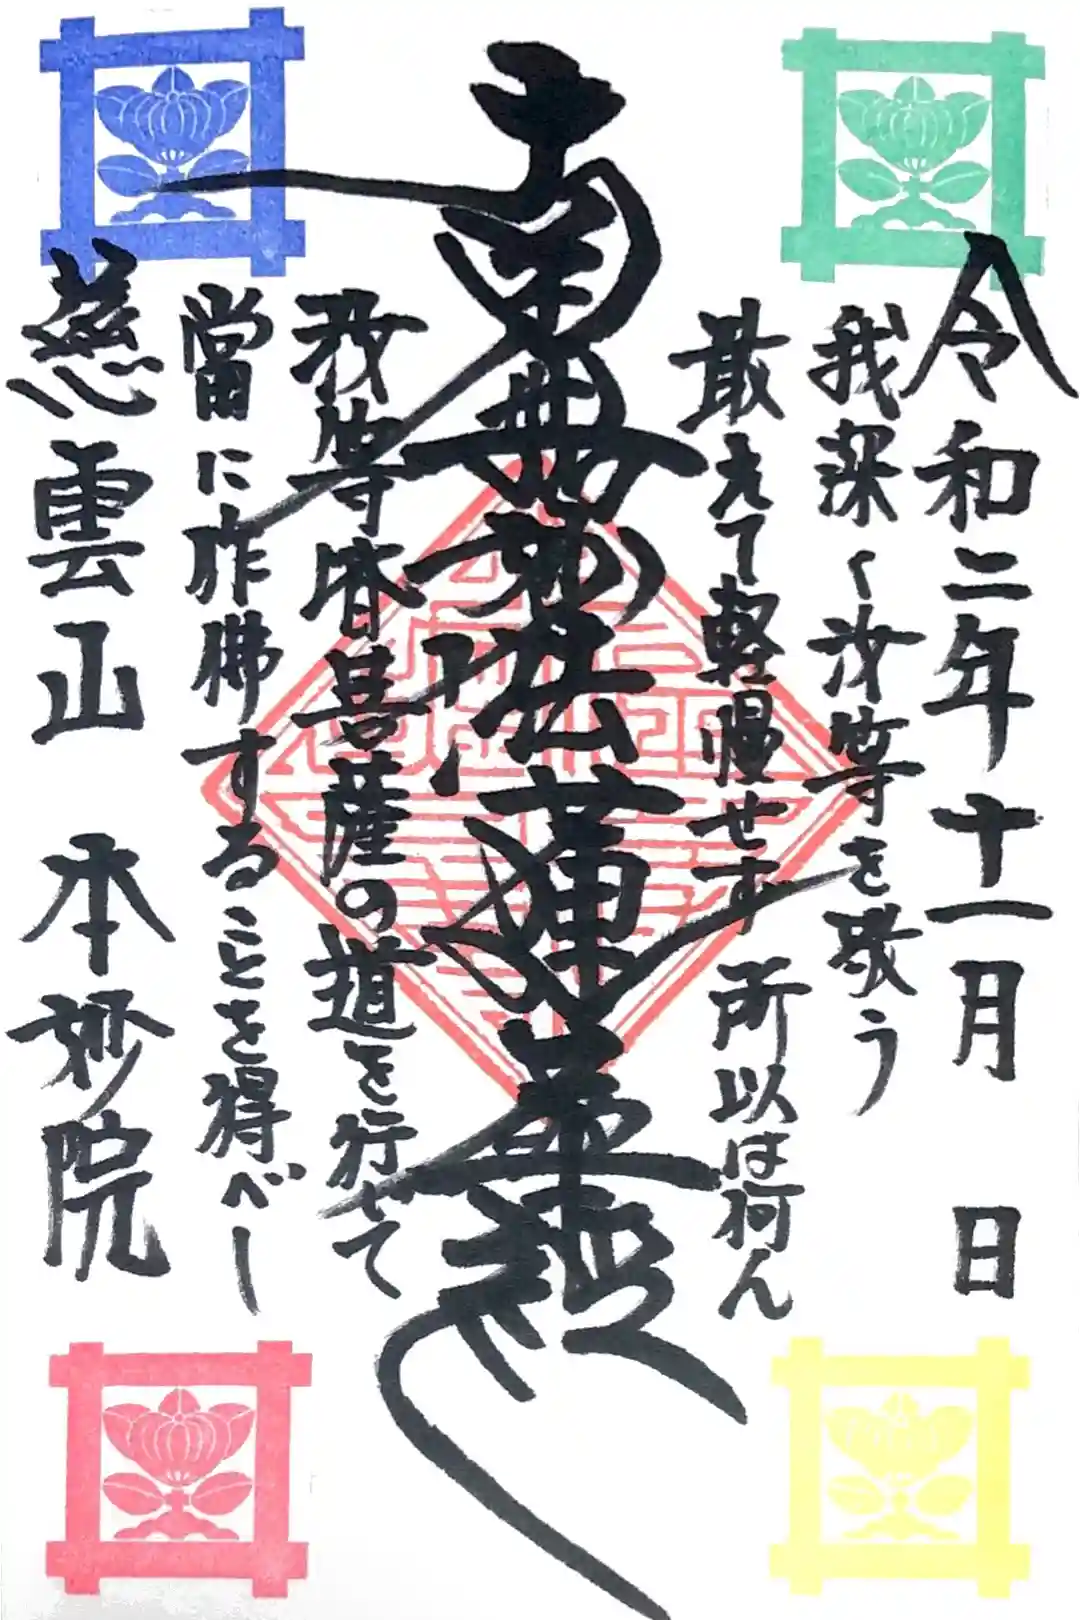 令和二年十一月 日
我深く汝等を敬う
最えて軽慢せず 所以は何ん
南無妙法蓮華経
汝等皆菩薩の道を行じて
當に作佛することを得べし
慈雲山 本妙院